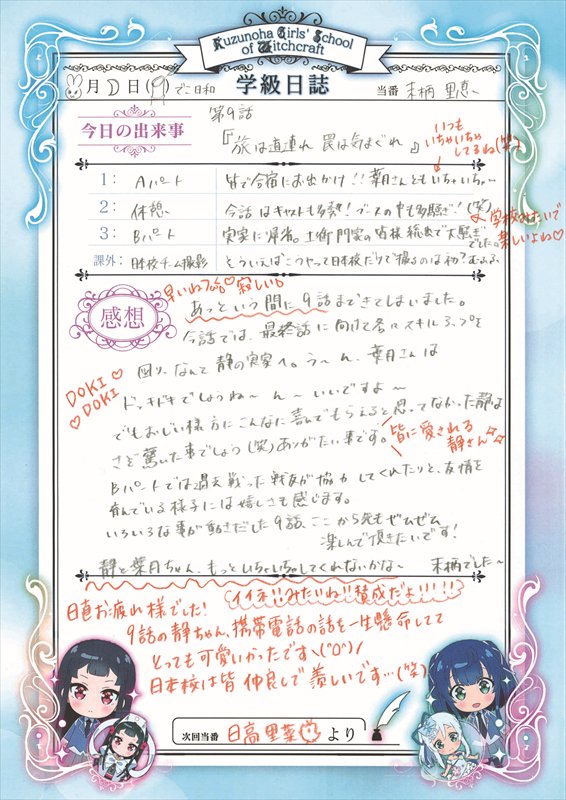 Kuzunoha Girls' School
of Witchcraft
月 日( )でこ日和
学級日誌
当番 末柄里恵
今日の出来事
第9話
『旅は道連れ 罠は気まぐれ』
いつも
いちゃいちゃ
してるね(笑)
1: Aパート 皆で合宿にお出かけ!!葉月さんともいちゃいちゃ〜
2: 休憩 今話はキャストも多勢!ブースの中も多騒ぎ!(笑)
学校みたいで
楽しいよね♡
3: Bパート 実家に帰省。土御門家の皆様総出で大騒ぎ
でした。
課外: 日本校チーム撮影 そういえばこうやって日本校だけで撮るのは初?むふふ
感想
早いね
寂しい
あっという間に9話まできてしまいました。
今話では、最終話に向けて各々スキルアップを
図り、なんて静の実家へ。う〜ん、葉月さんは
DOKI♡
♡DOKI
ドッキドキでしょうね〜ん〜いいですよ〜
でもおじい様方にこんなに喜んでもらえると思ってなかった静は
さぞ驚いた事でしょう(笑)ありがたい事です。
皆に愛される
静さん☆
Bパートでは過去戦った戦友が協力してくれたりと、友情を
育んでいる様子には嬉しさも感じます。
いろいろな事が動きだした9話、ここから先もぜひぜひ
楽しんで頂きたいです!
静と葉月ちゃん、もっといちゃいちゃしてくれないかな〜 末柄でした〜
日直お疲れ様でした!
(イイネ!!みたいね!!賛成だよ!!!!!
9話の静ちゃん、携帯電話の話を一生懸命してて
とっても可愛いかったです\(^o^)/
日本校は皆仲良しで羨しいです…(笑)
次回当番 日高里菜 より